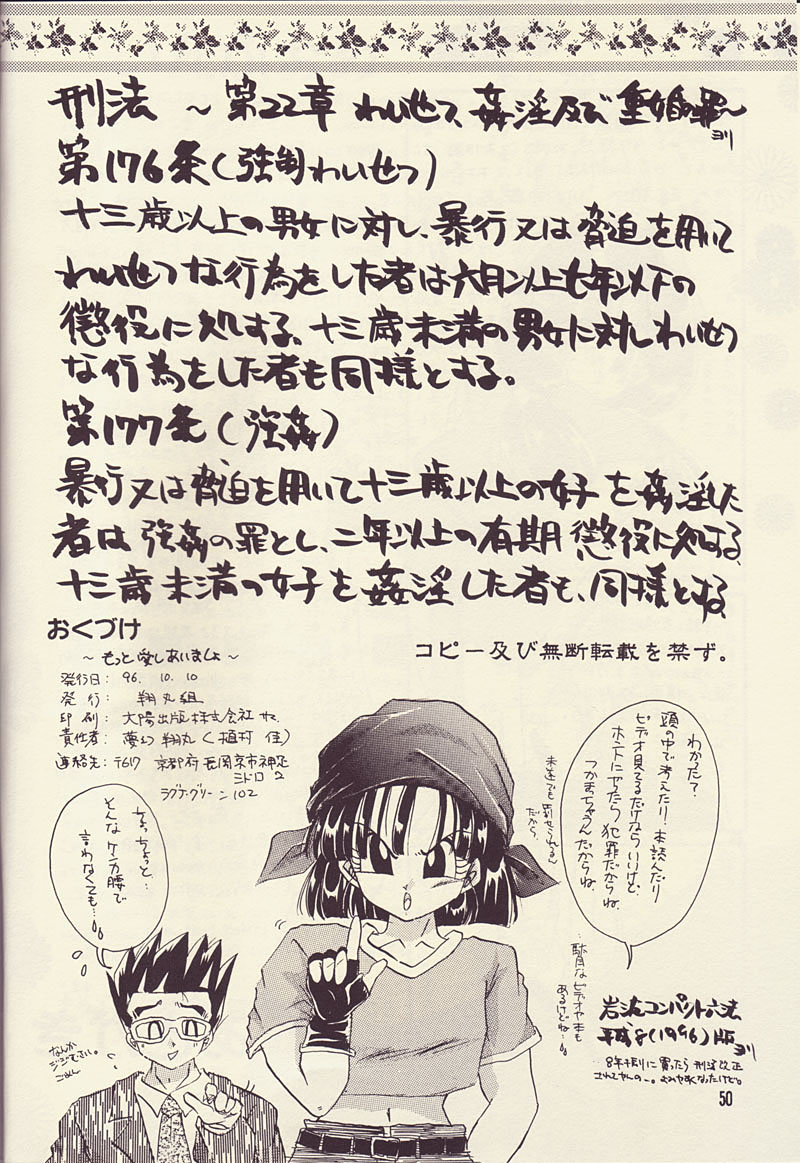 刑法 〜第22章 わいせつ、姦淫及び重婚の罪〜
ヨリ
第176条(強制わいせつ)
十三歳以上の男女に対し、暴行又は脅迫を用いて
わいせつな行為をした者は六月以上七年以下の
懲役に処する。十三歳未満の男女に対しわいせつ
な行為をした者も同様とする。
第177条(強姦)
暴行又は脅迫を用いて十三歳以上の女子を姦淫した
者は強姦の罪とし、二年以上の有期懲役に処する。
十三歳未満の女子を姦淫した者も、同様とする。
おくづけ
〜もっと愛しあいましょ〜
コピー及び無断転載を禁ず。
発行日: 96. 10. 10
発行: 翔丸組
印刷: 大陽出版株式会社サマ
責任者: 夢幻翔丸(植村 佳)
連絡先: 〒617 京都府長岡京市神足
ミドロ 2
ラグナ・グリーン102
わかった?
頭の中で考えたり、本読んだり
ビデオ見てるだけならいいけど、
ホントにやったら犯罪だからね。
つかまっちゃうんだからね。
未遂でも罰せられるん
だから。
駄目なビデオや本も
あるけどね…。
ちょ、ちょっと…
そんなケンカ腰で
言わなくても…
なんか
ごめん
岩波コンパクト六法
平成8(1996)版
ヨリ
50